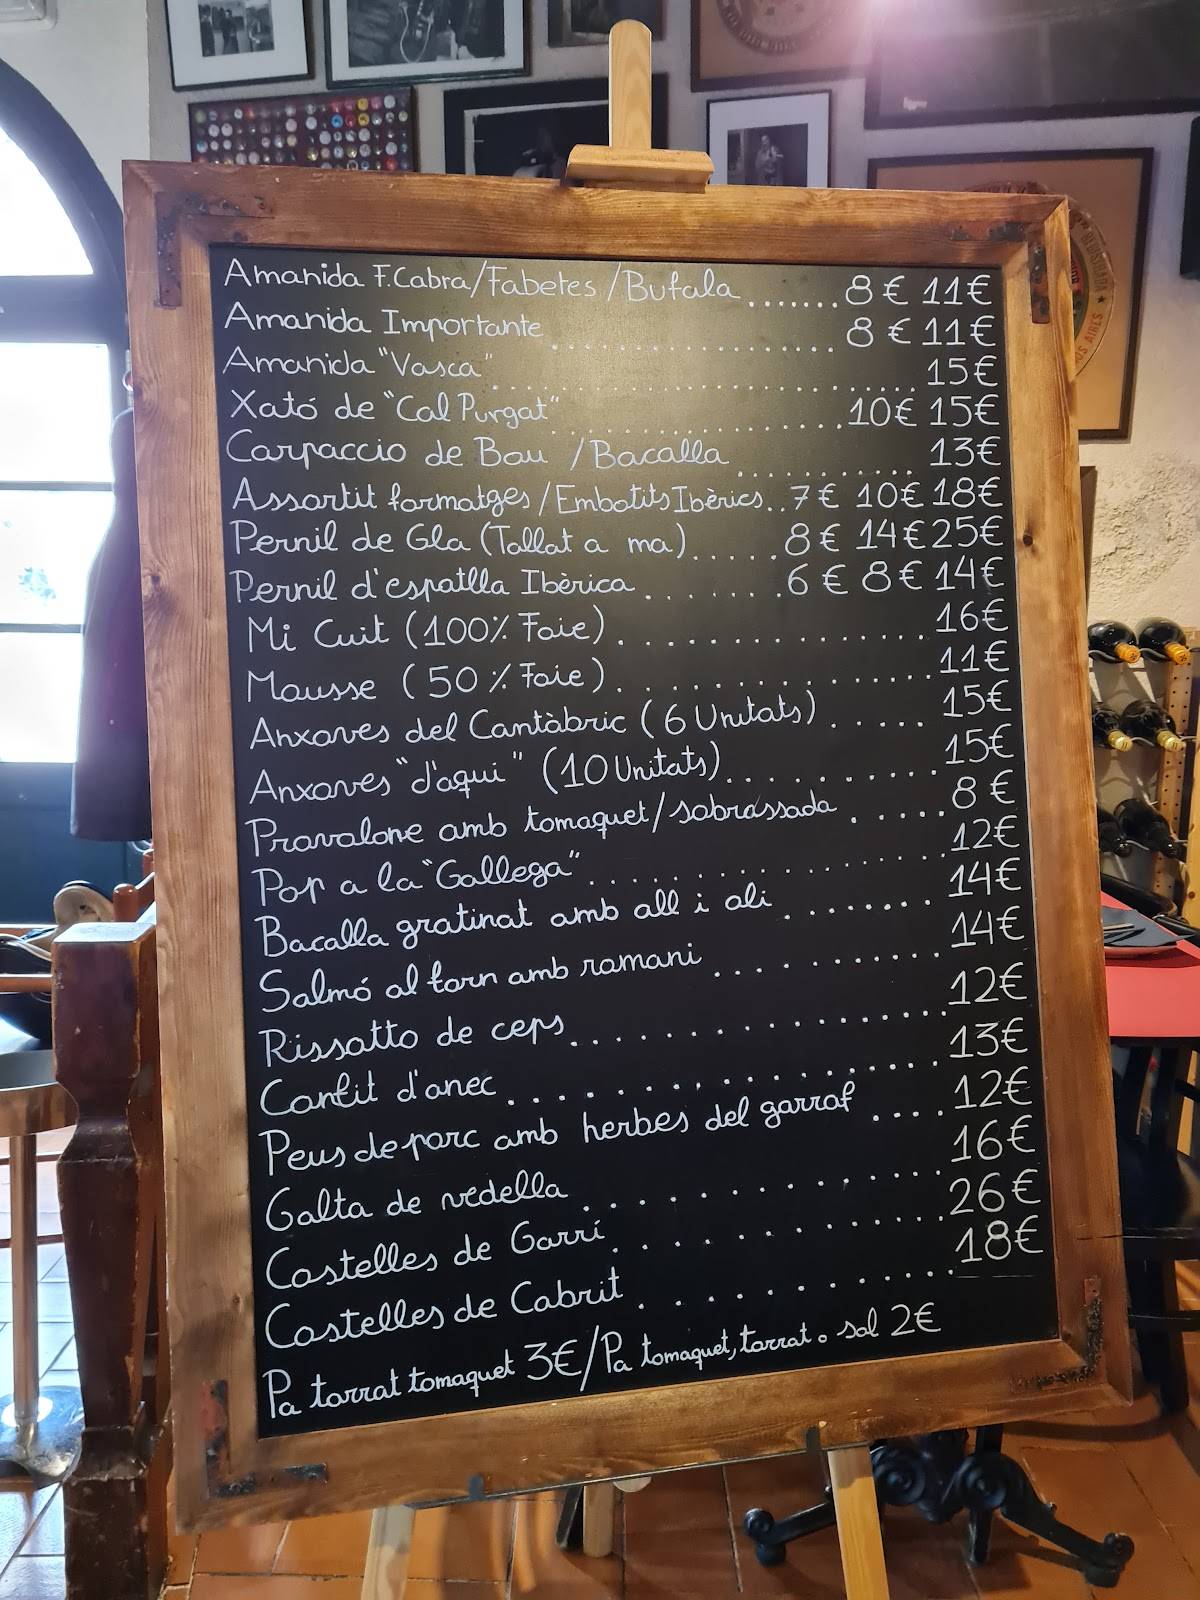 Amanida F.Cabra/Fabetes/Bufala.......8€ 11€
Amanida Importante................8€ 11€
Amanida "Vasca"........................15€
Xató de "Cal Purgat"................10€ 15€
Carpaccio de Bou /Bacalla...........13€
Assortit formatges/Embotits Ibèrics..7€ 10€ 18€
Pernil de Gla (Tallat a ma).....8€ 14€ 25€
Pernil d'espatlla Ibèrica.......6€ 8€ 14€
Mi Cuit (100% Foie)..............16€
Mousse (50% Foie)..............11€
Anxoves del Cantàbric (6 Unitats).....15€
Anxoves "d'aqui" (10 Unitats)..........15€
Provolone amb tomaquet/sobrassada.....8€
Pop a la "Gallega"..............12€
Bacalla gratinat amb all i oli.......14€
Salmó al forn amb romani..........14€
Rissotto de ceps................12€
Confit d'anec................13€
Peus de porc amb herbes del garraf....12€
Galta de vedella.............16€
Costelles de Garrí............26€
Costelles de Cabrit..........18€
Pa torrat tomaquet 3€/Pa tomaquet, torrat o sol 2€
OS AIRES